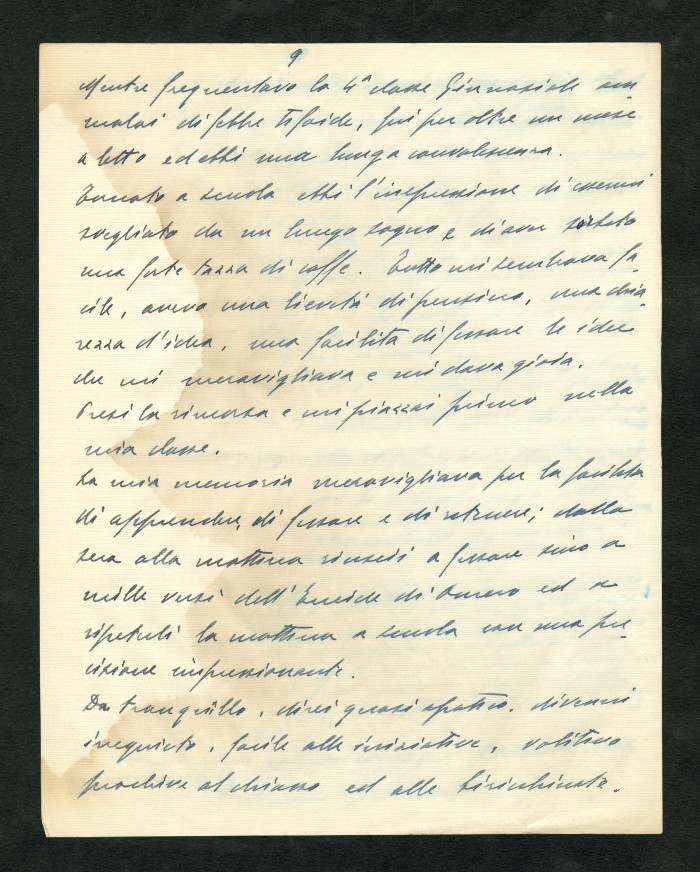 9
Mentre frequentavo la 4ª classe Ginnasiale am
malai di febbre tifoide, fui per oltre un mese
a letto ed ebbi una lunga convalescenza.
Tornato a scuola ebbi l'impressione di essermi
svegliato da un lungo sogno e di aver
una forte tazza di caffe. Tutto mi sembrava fa
cile, avevo una lievità di pensiero, una chia-
rezza d'idea, una facilità di fissare le idee
che mi meravigliava e mi dava gioia.
Presi la rincorsa e mi piazzai primo nella
mia classe.
La mia memoria meravigliava per la facilità
di apprendere, di fissare e di ritenere; dalla
sera alla mattina riuscii a fissare sino a
mille versi dell'Eneide di Omero ed a
ripeterli la mattina a scuola con una pre-
cisione impressionante.
Da tranquillo, direi quasi apatico, divenni
inquieto, facile alle iniziative, volitivo
proclive al chiasso ed alle birichinate.